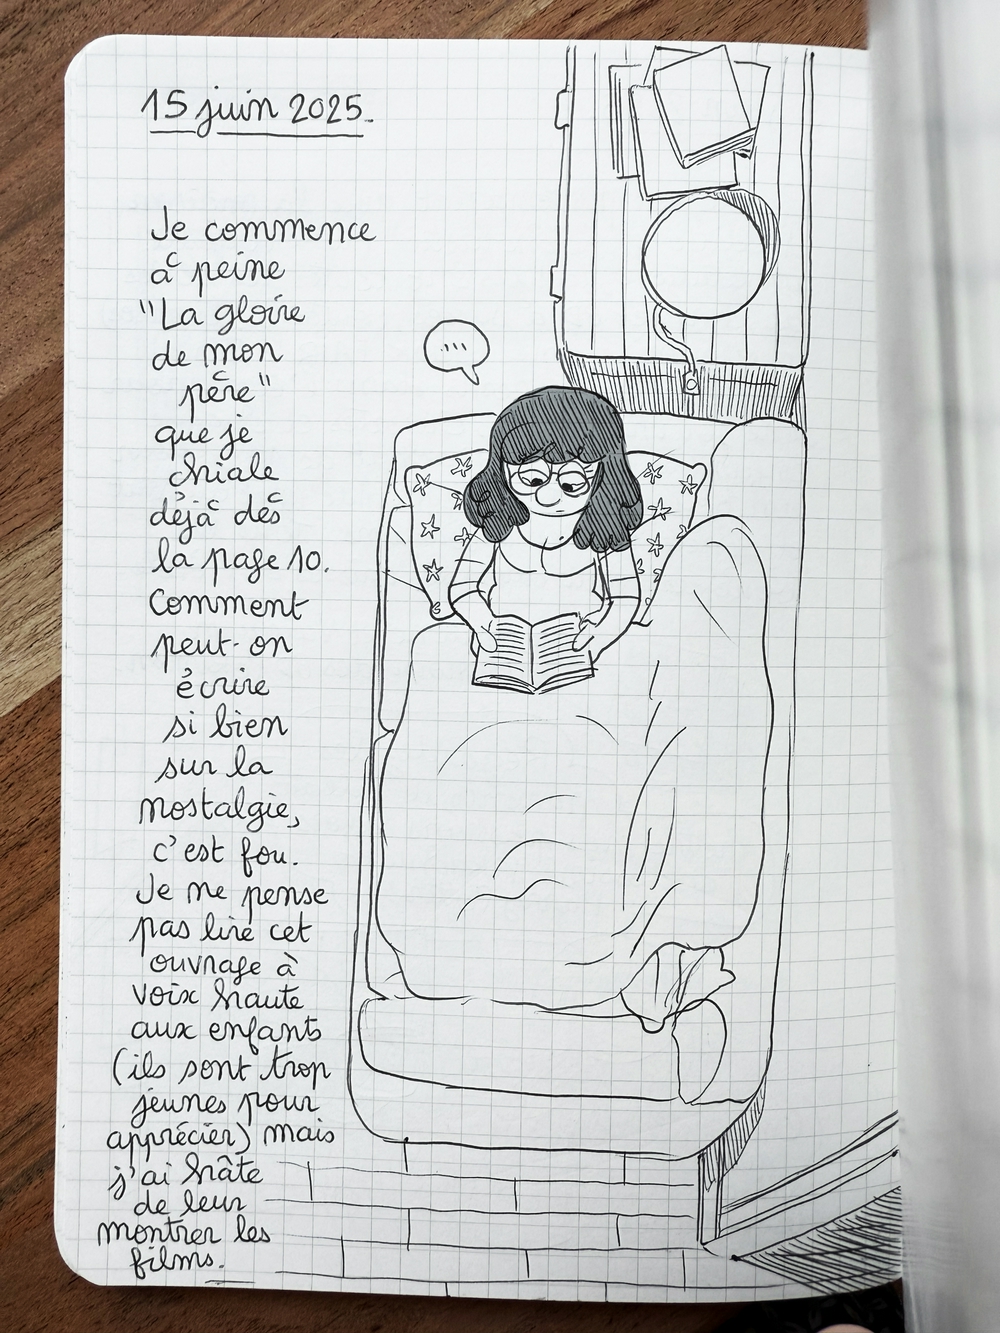 15 juin 2025.
Je commence
à peine
"La gloire
de mon
père"
que je
chiale
déjà dès
la page 10.
Comment
peut-on
écrire
si bien
sur la
nostalgie,
c'est fou.
Je ne pense
pas lire cet
ouvrage à
voix haute
aux enfants
(ils sont trop
jeunes pour
apprécier) mais
j'ai hâte
de leur
montrer les
films.
...